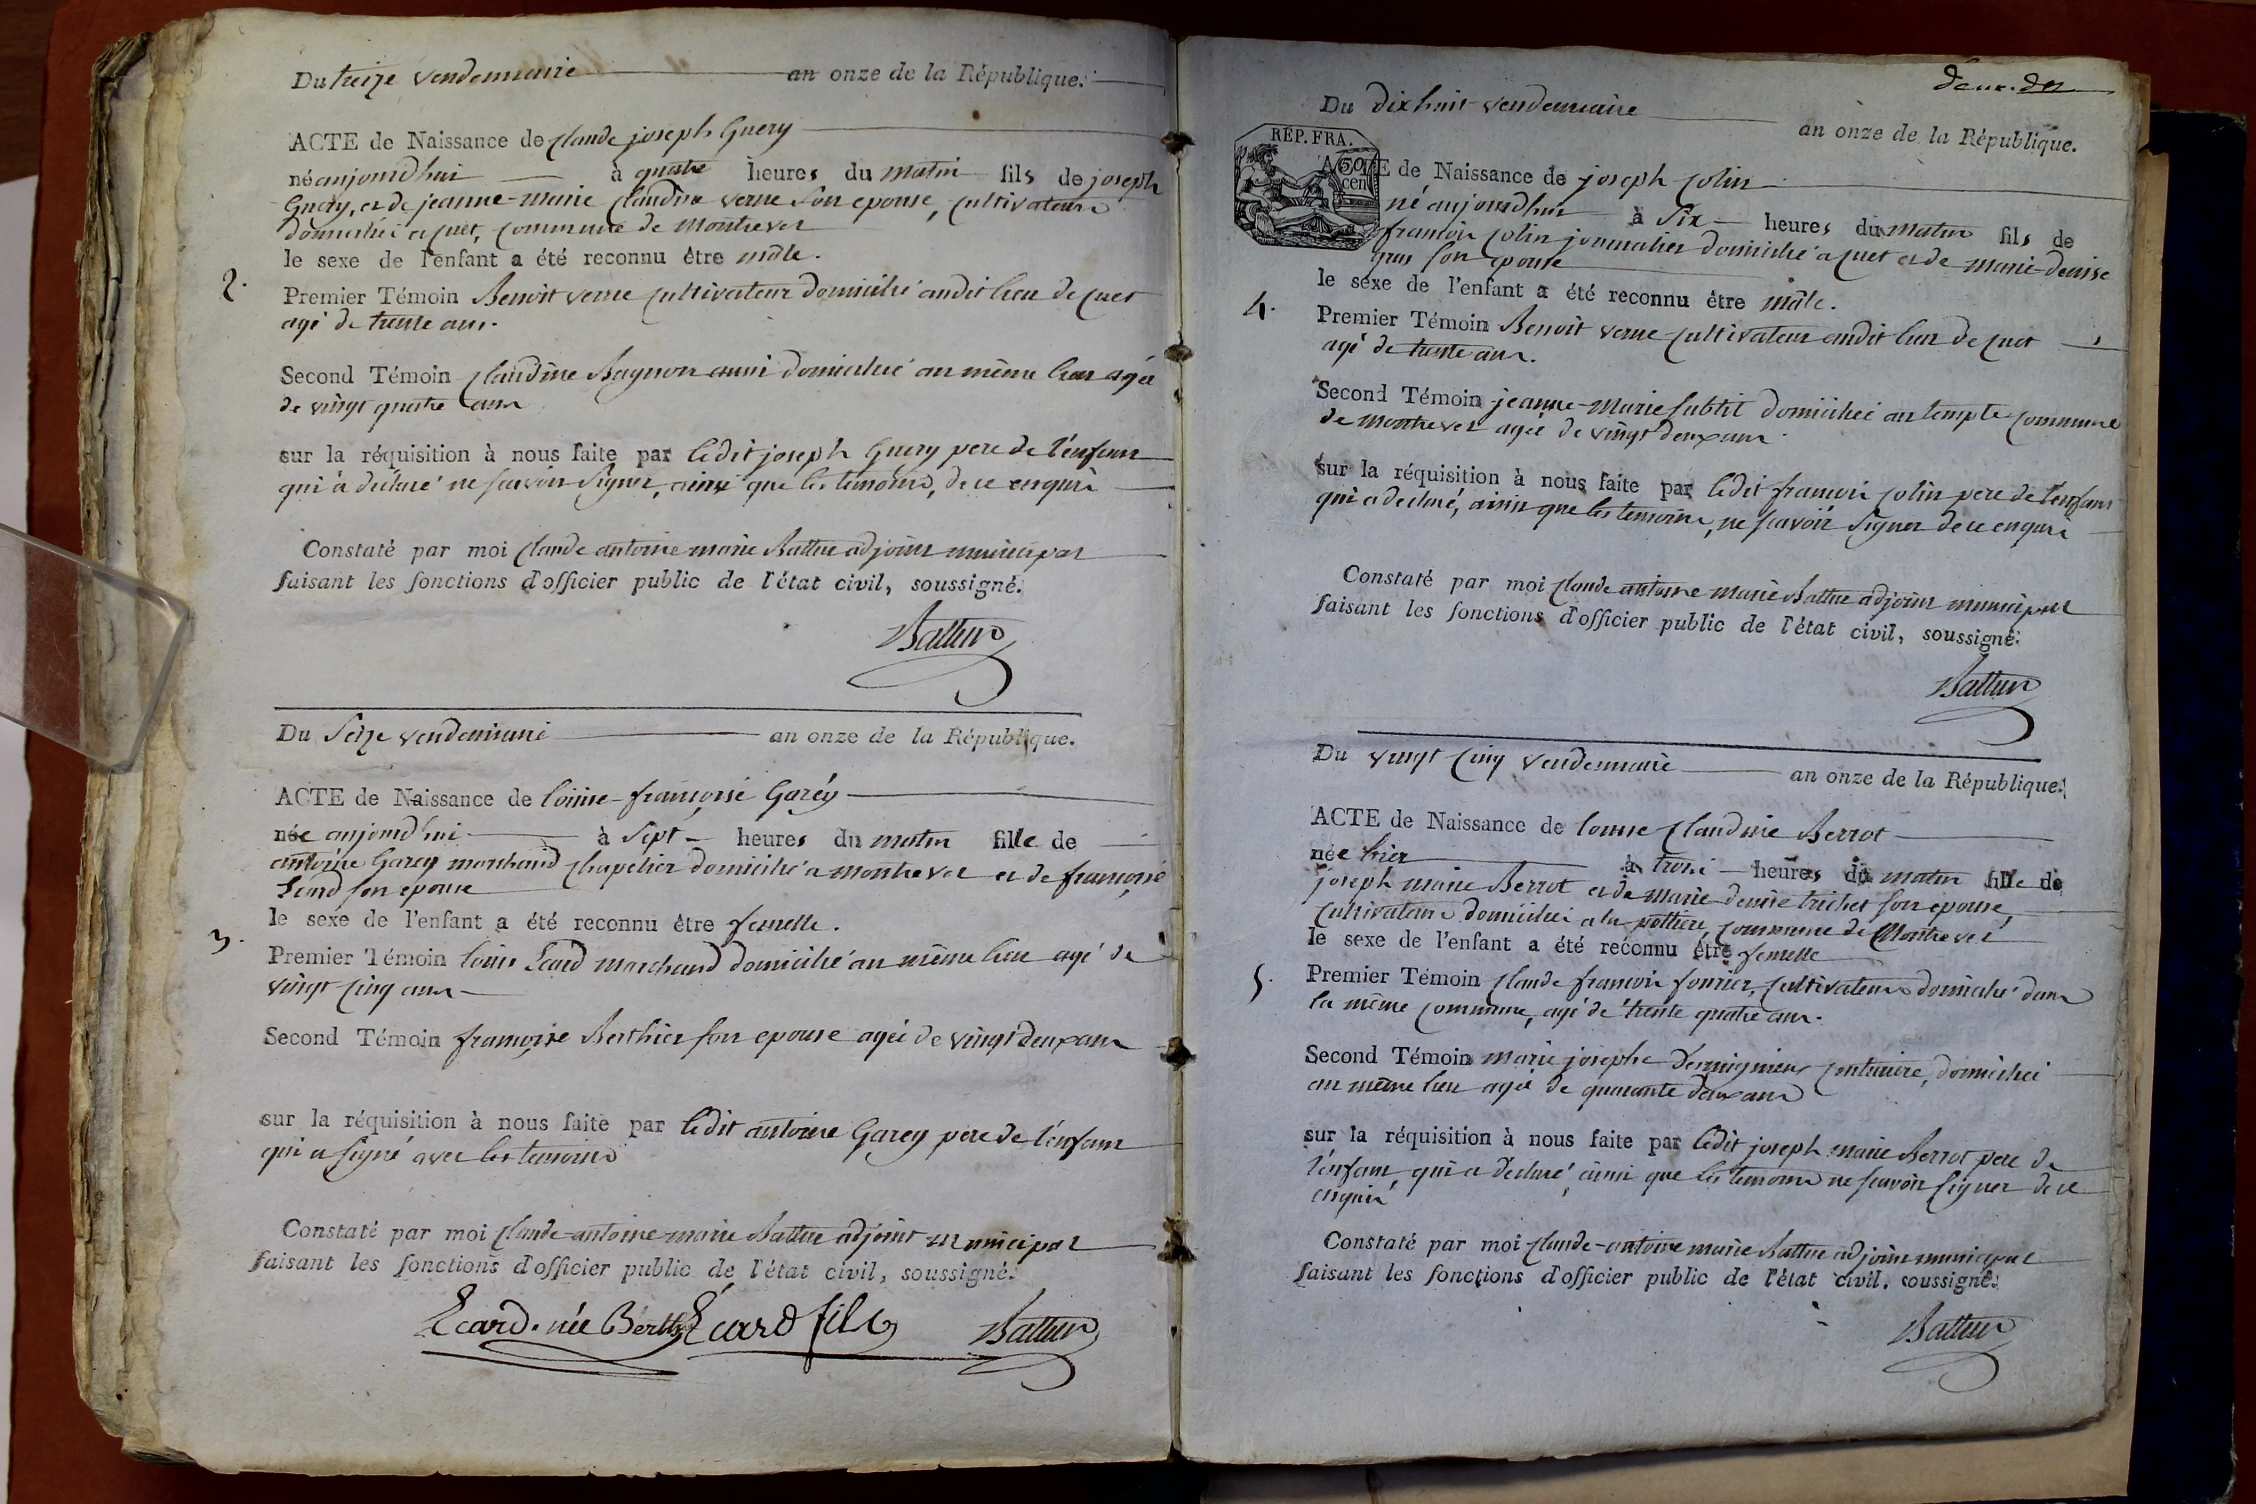 Du treize vendemiaire an onze de la République.
ACTE de Naissance de Claude joseph Guery
né aujourdhui à quatre heures du matin fils de joseph
Guery, et de jeanne-marie Claudine verne son epouse, Cultivateurs
domiciliés a Cuet, Commune de Montrevel
le sexe de l'enfant a été reconnu être mâle.
2.
Premier Témoin Benoit verne Cultivateur domicilié audit lieu de Cuet
agé de trente ans.
Second Témoin Claudine Bagnon aussi domiciliée au même lieu agée
de vingt quatre ans
sur la réquisition à nous faite par ledit joseph Guery pere de l'enfant
qui a déclaré ne scavoir signer, ainsi que les temoins, de ce enquis
Constaté par moi Claude antoine marie Battur adjoint municipal
faisant les fonctions d'officier public de l'état civil, soussigné.
Battur
Du Seize vendemiaire an onze de la République.
ACTE de Naissance de louise-françoise Garéy
née aujourdhui à Sept heures du matin fille de
antoine Garey marchand Chapelier domicilié a montrevel et de françoise
Ecard son epouse
le sexe de l'enfant a été reconnu être femelle.
3.
Premier Témoin louis Ecard marchand domicilié au même lieu agé de
vingt Cinq ans
Second Témoin françoise Berthier son epouse agée de vingt deux ans
sur la réquisition à nous faite par ledit antoine Garey pere de l'enfant
qui a signé avec les temoins
Constaté par moi Claude-antoine-marie Battur adjoint municipal
faisant les fonctions d'officier public de l'état civil, soussigné.
Ecard. née Berth Ecard fils Battur
deux.
Du dix huit vendemiaire an onze de la République.
RÉP. FRA.
50 cen
ACTE de Naissance de joseph Colin
né aujourdhui à Six heures du matin fils de
francois Colin journalier domicilié a Cuet et de marie-denise
gras son epouse
le sexe de l'enfant a été reconnu être mâle.
4.
Premier Témoin Benoit verne Cultivateur audit lieu de Cuet
agé de trente ans.
Second Témoin jeanne-Marie Subtil domiciliée au temple Commune
de Montrevel agée de vingt deux ans.
sur la réquisition à nous faite par ledit francois Colin pere de l'enfant
qui a declaré, ainsi que les temoins, ne scavoir Signer de ce enquis
Constaté par moi Claude antoine marie Battur adjoint municipal
faisant les fonctions d'officier public de l'état civil, soussigné.
Battur
Du vingt Cinq vendemiaire an onze de la République.
ACTE de Naissance de louise Claudine Berrot
née hier à trois heures du matin fille de
joseph marie Berrot et de marie-denise trichet son epouse,
Cultivateurs domiciliés a la pottiere, Commune de Montrevel
le sexe de l'enfant a été reconnu être femelle
5.
Premier Témoin Claude francois fournier, Cultivateur domicilié dans
la même Commune, agé de trente quatre ans.
Second Témoin marie josephe Couturiere, domiciliée
au même lieu agée de quarante deux ans
sur la réquisition à nous faite par ledit joseph marie Berrot pere de
l'enfant qui a declaré, ainsi que les temoins ne scavoir signer de ce
enquis
Constaté par moi Claude-antoine marie Battur adjoint municipal
faisant les fonctions d'officier public de l'état civil, soussigné.
Battur